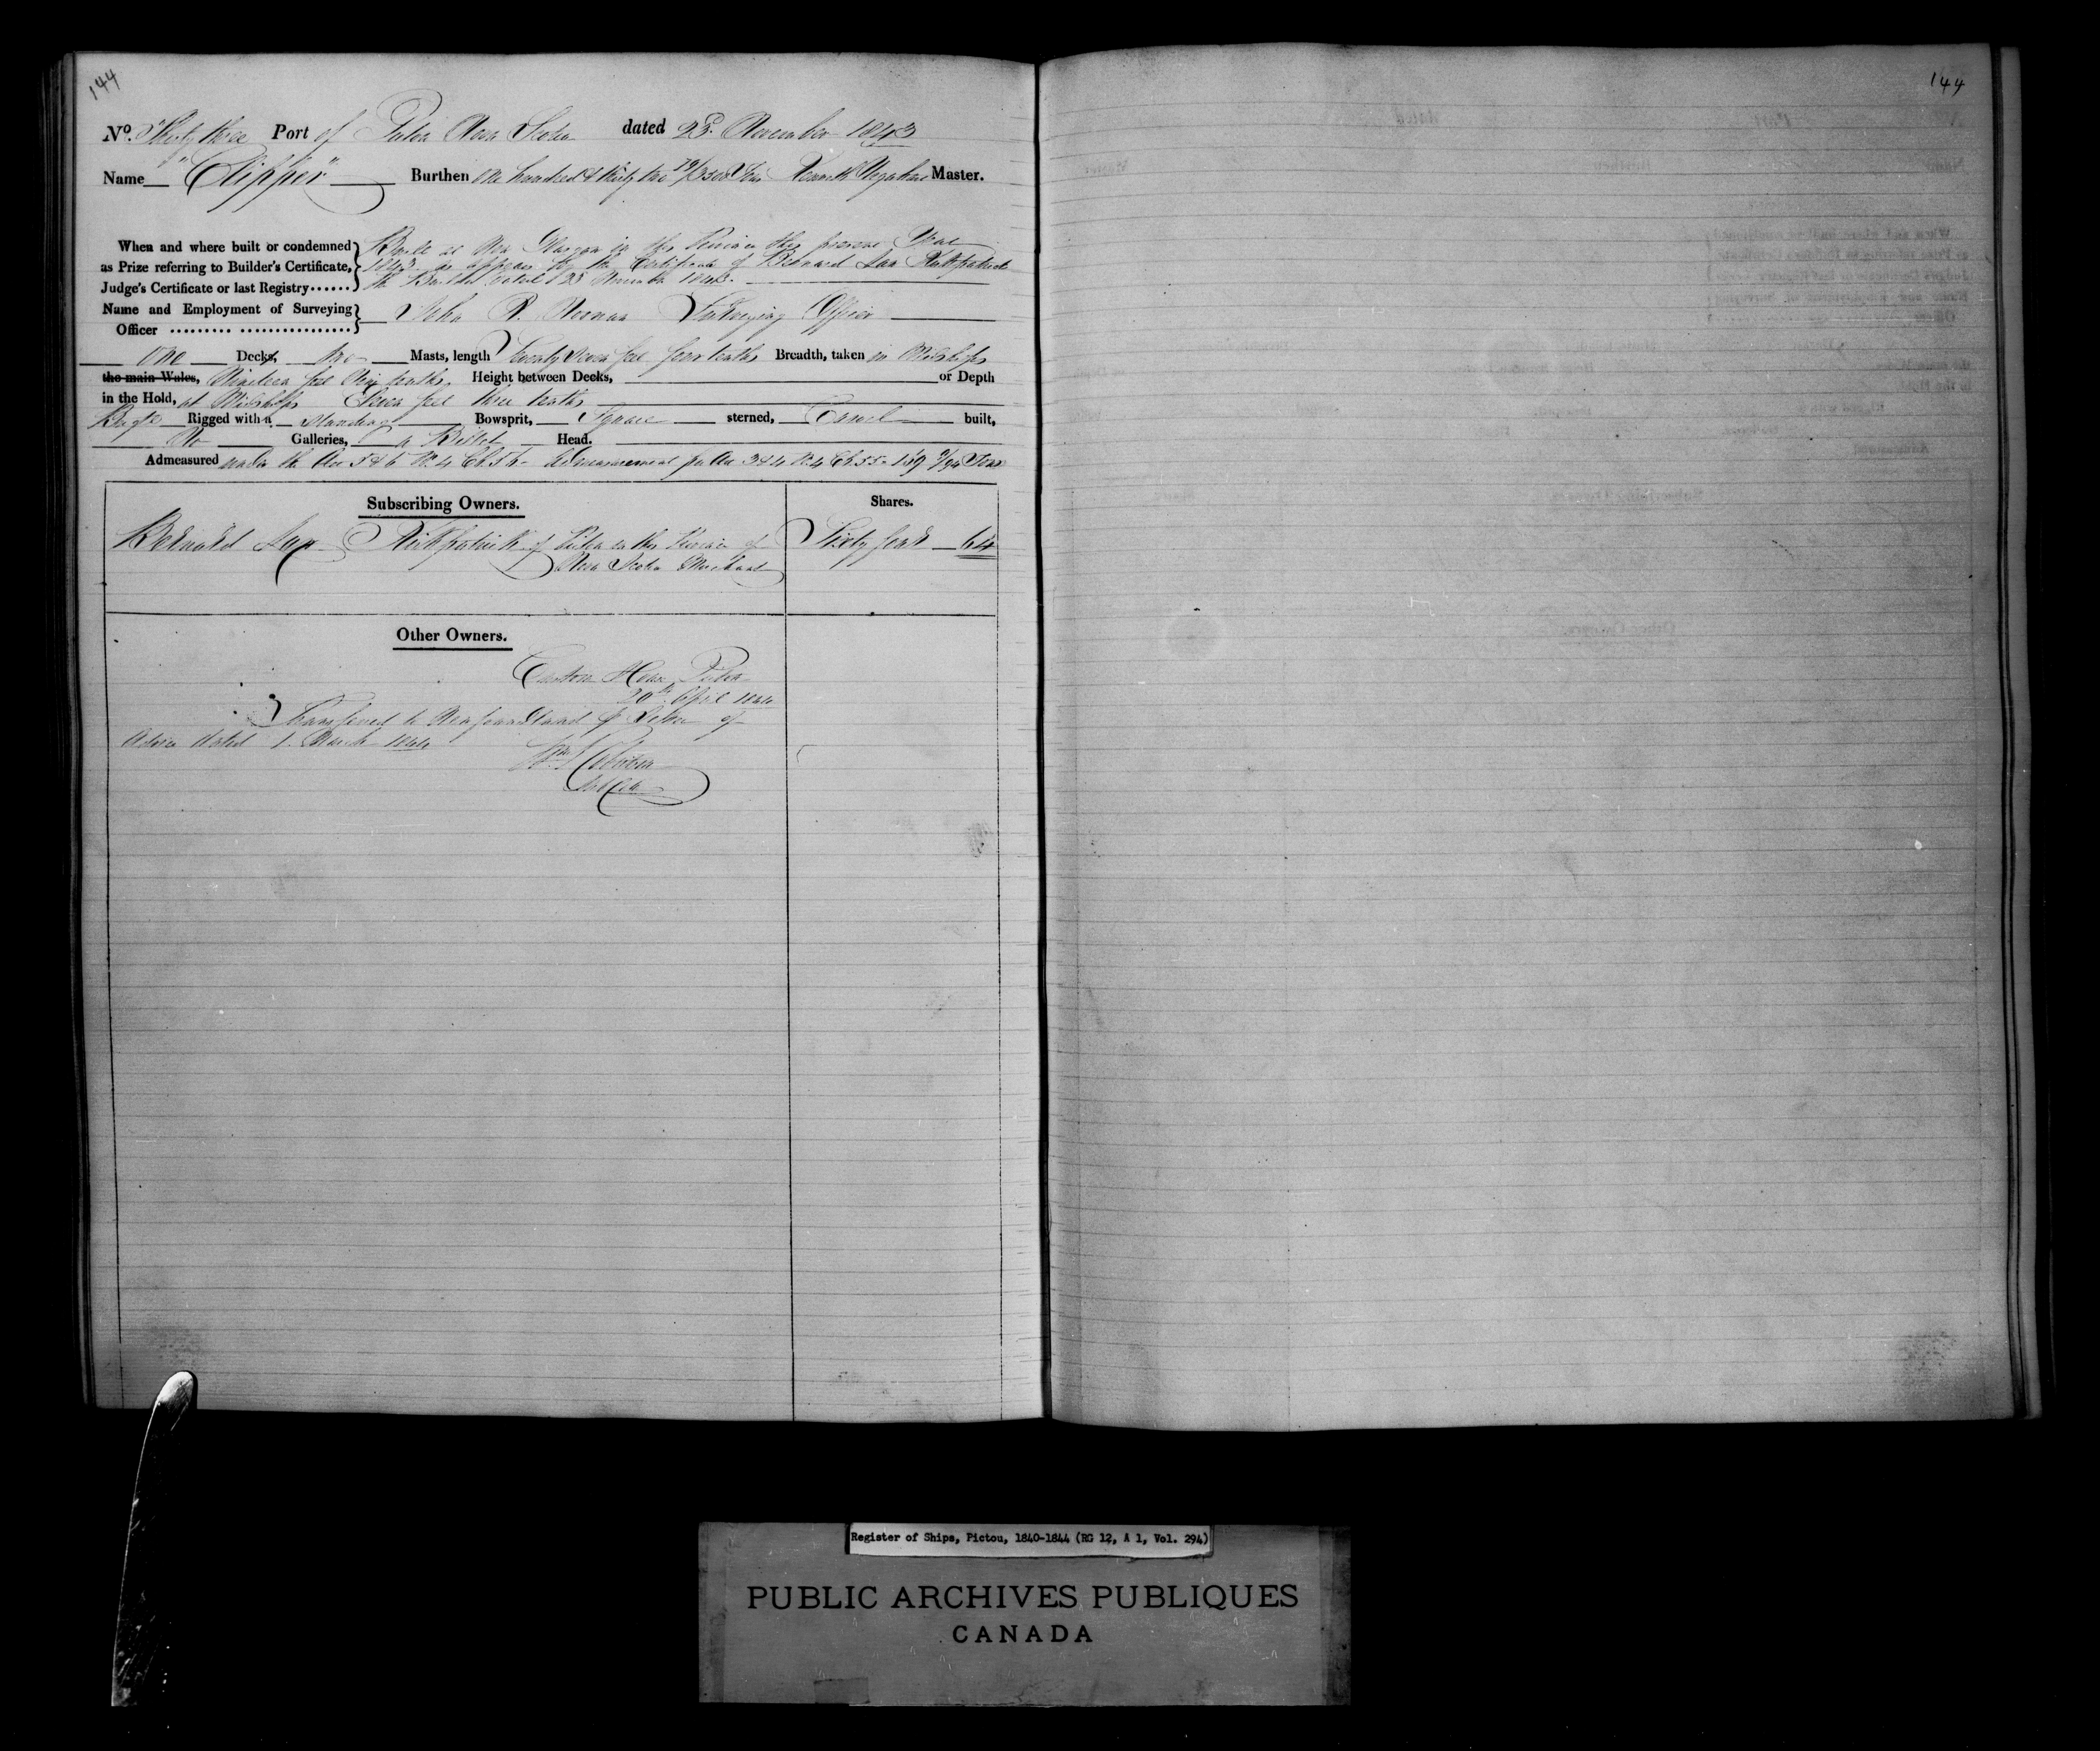 144
144
No. Thirty three Port of Pictou Nova Scotia dated 23d. November 1843
Name "Clipper" Burthen One hundred & thirty two /3500 Tons Kenneth Master.
When and where built or condemned as Prize referring to Builder's Certificate, Judge's Certificate or last Registry......
Built at New Glasgow in this Province this present Year
1843 as appears by the Certificate of Bernard Kirkpatrick
the Builder dated 23 November 1843.
Name and Employment of Surveying Officer ......... ................
John R. Noonan Surveying Officer
One Decks, two Masts, length Seventy seven feet four tenths Breadth, taken in Midships
the main Wales, Nineteen feet nine tenths, Height between Decks, or Depth
in the Hold, at Midships Eleven feet three tenths
Brigt. Rigged with a Standing Bowsprit, Square sterned, Carvel built,
No Galleries, a Billet Head.
Admeasured under the Act 5 & 6 W. 4 Ch. 56 - Admeasurement per Act 3 & 4 W. 4 Ch. 55 - 139 /94 Tons
Subscribing Owners. Shares.
Bernard Kirkpatrick of Pictou in the Province of Sixty four 64
Nova Scotia Merchant
Other Owners.
Custom House Pictou
20th April 1844
Transferred to Newfoundland Letter of
Advice dated 1. March 1844
Wm
Register of Ships, Pictou, 1840-1844 (RG 12, A 1, Vol. 294)
PUBLIC ARCHIVES PUBLIQUES
CANADA